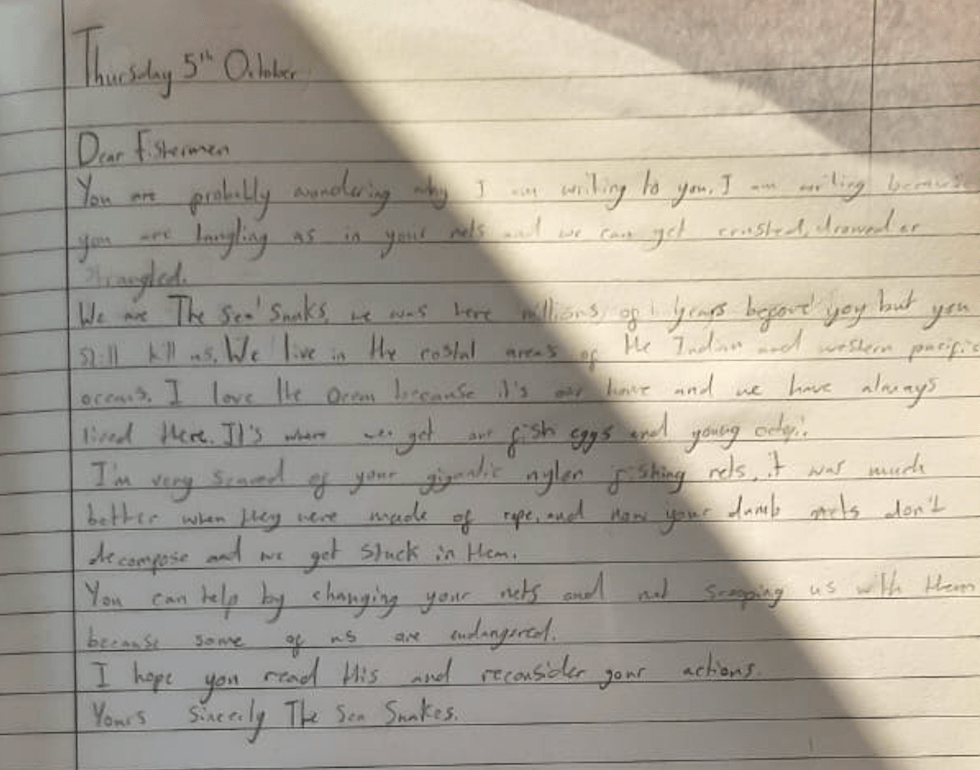 Thursday 5th October
Dear Fishermen
You are probally wondering why I am writing to you. I am writing because
you are tangling us in your nets and we can get crushed, drowed or
strangled.
We are The Sea Snaks, we was here millions of years before you but you
still kill us. We live in the costal areas of the Indian and western pacific
oceans. I love the Ocean because it's our home and we have always
lived there. It's where we get our fish eggs and young octopi.
I'm very scared of your gigantic nylon fishing nets, it was much
better when they were made of rope, and now your dumb nets don't
decompose and we get stuck in them.
You can help by changing your nets and not scooping us with them
because some of us are endangered.
I hope you read this and reconsider your actions.
Yours Sincerly The Sea Snakes.